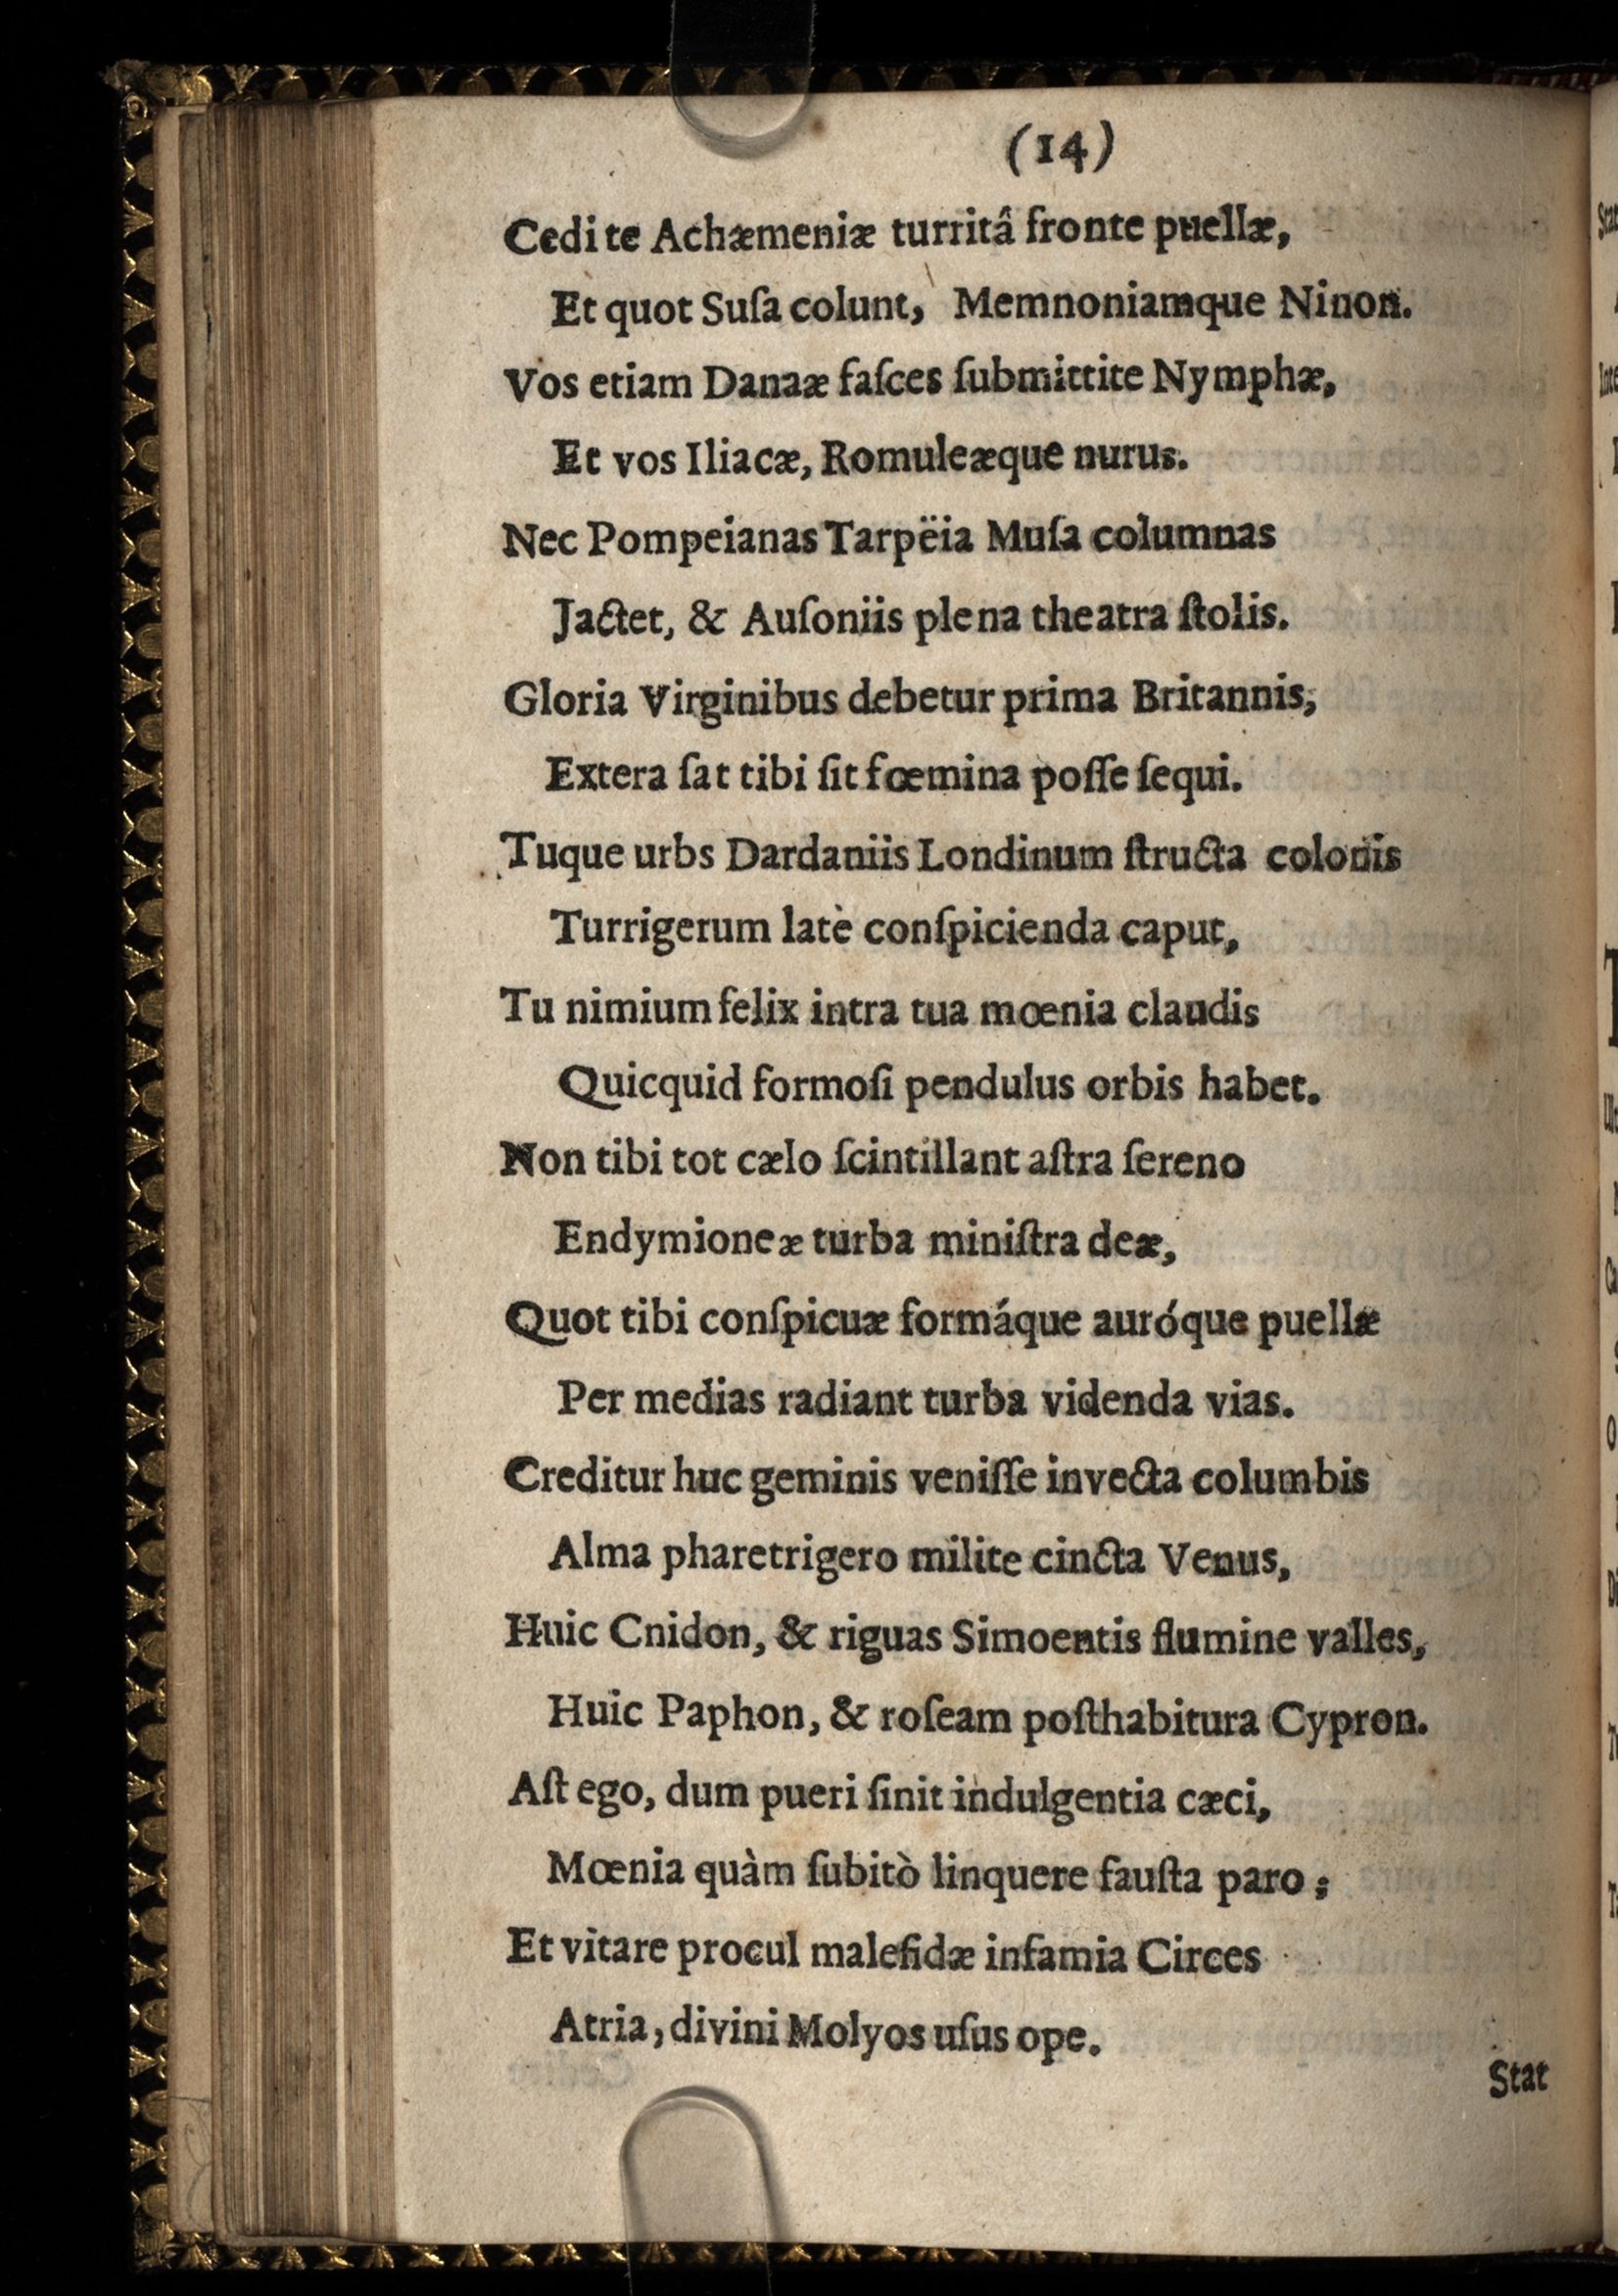 (14)
Cedite Achæmeniæ turritâ fronte puellæ,
Et quot Suſa colunt, Memnoniamque Ninon.
Vos etiam Danaæ faſces ſubmittite Nymphæ,
Et vos Iliacæ, Romuleæque nurus.
Nec Pompeianas Tarpëia Muſa columnas
Jactet, & Auſoniis plena theatra ſtolis.
Gloria Virginibus debetur prima Britannis,
Extera ſat tibi ſit fœmina poſſe ſequi.
Tuque urbs Dardaniis Londinum ſtructa colonis
Turrigerum latè conſpicienda caput,
Tu nimium felix intra tua mœnia claudis
Quicquid formoſi pendulus orbis habet.
Non tibi tot cælo ſcintillant aſtra ſereno
Endymioneæ turba miniſtra deæ,
Quot tibi conſpicuæ formáque auróque puellæ
Per medias radiant turba videnda vias.
Creditur huc geminis veniſſe invecta columbis
Alma pharetrigero milite cincta Venus,
Huic Cnidon, & riguas Simoentis flumine valles,
Huic Paphon, & roſeam poſthabitura Cypron.
Aſt ego, dum pueri ſinit indulgentia cæci,
Mœnia quàm ſubitò linquere fauſta paro;
Et vitare procul malefidæ infamia Circes
Atria, divini Molyos uſus ope.
Stat